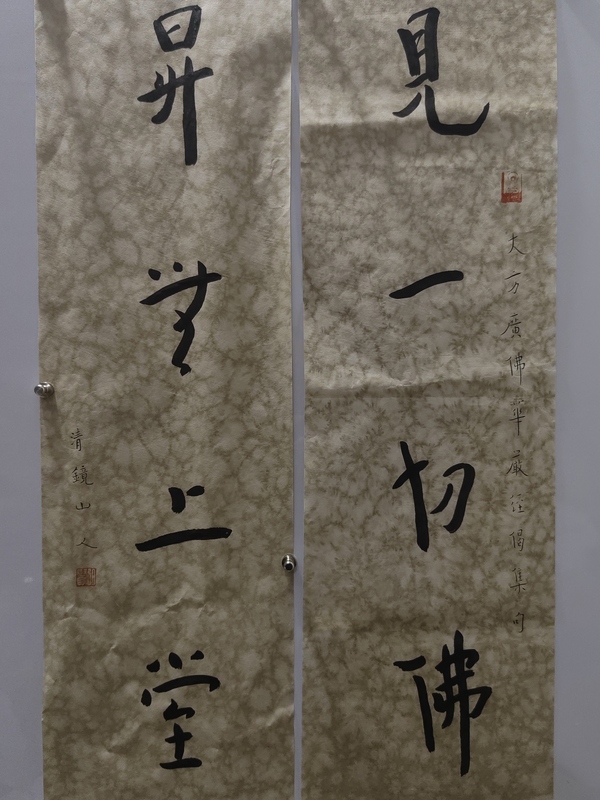 大方廣佛華嚴經偈集句
見一切佛
昇無上堂
清鏡山人